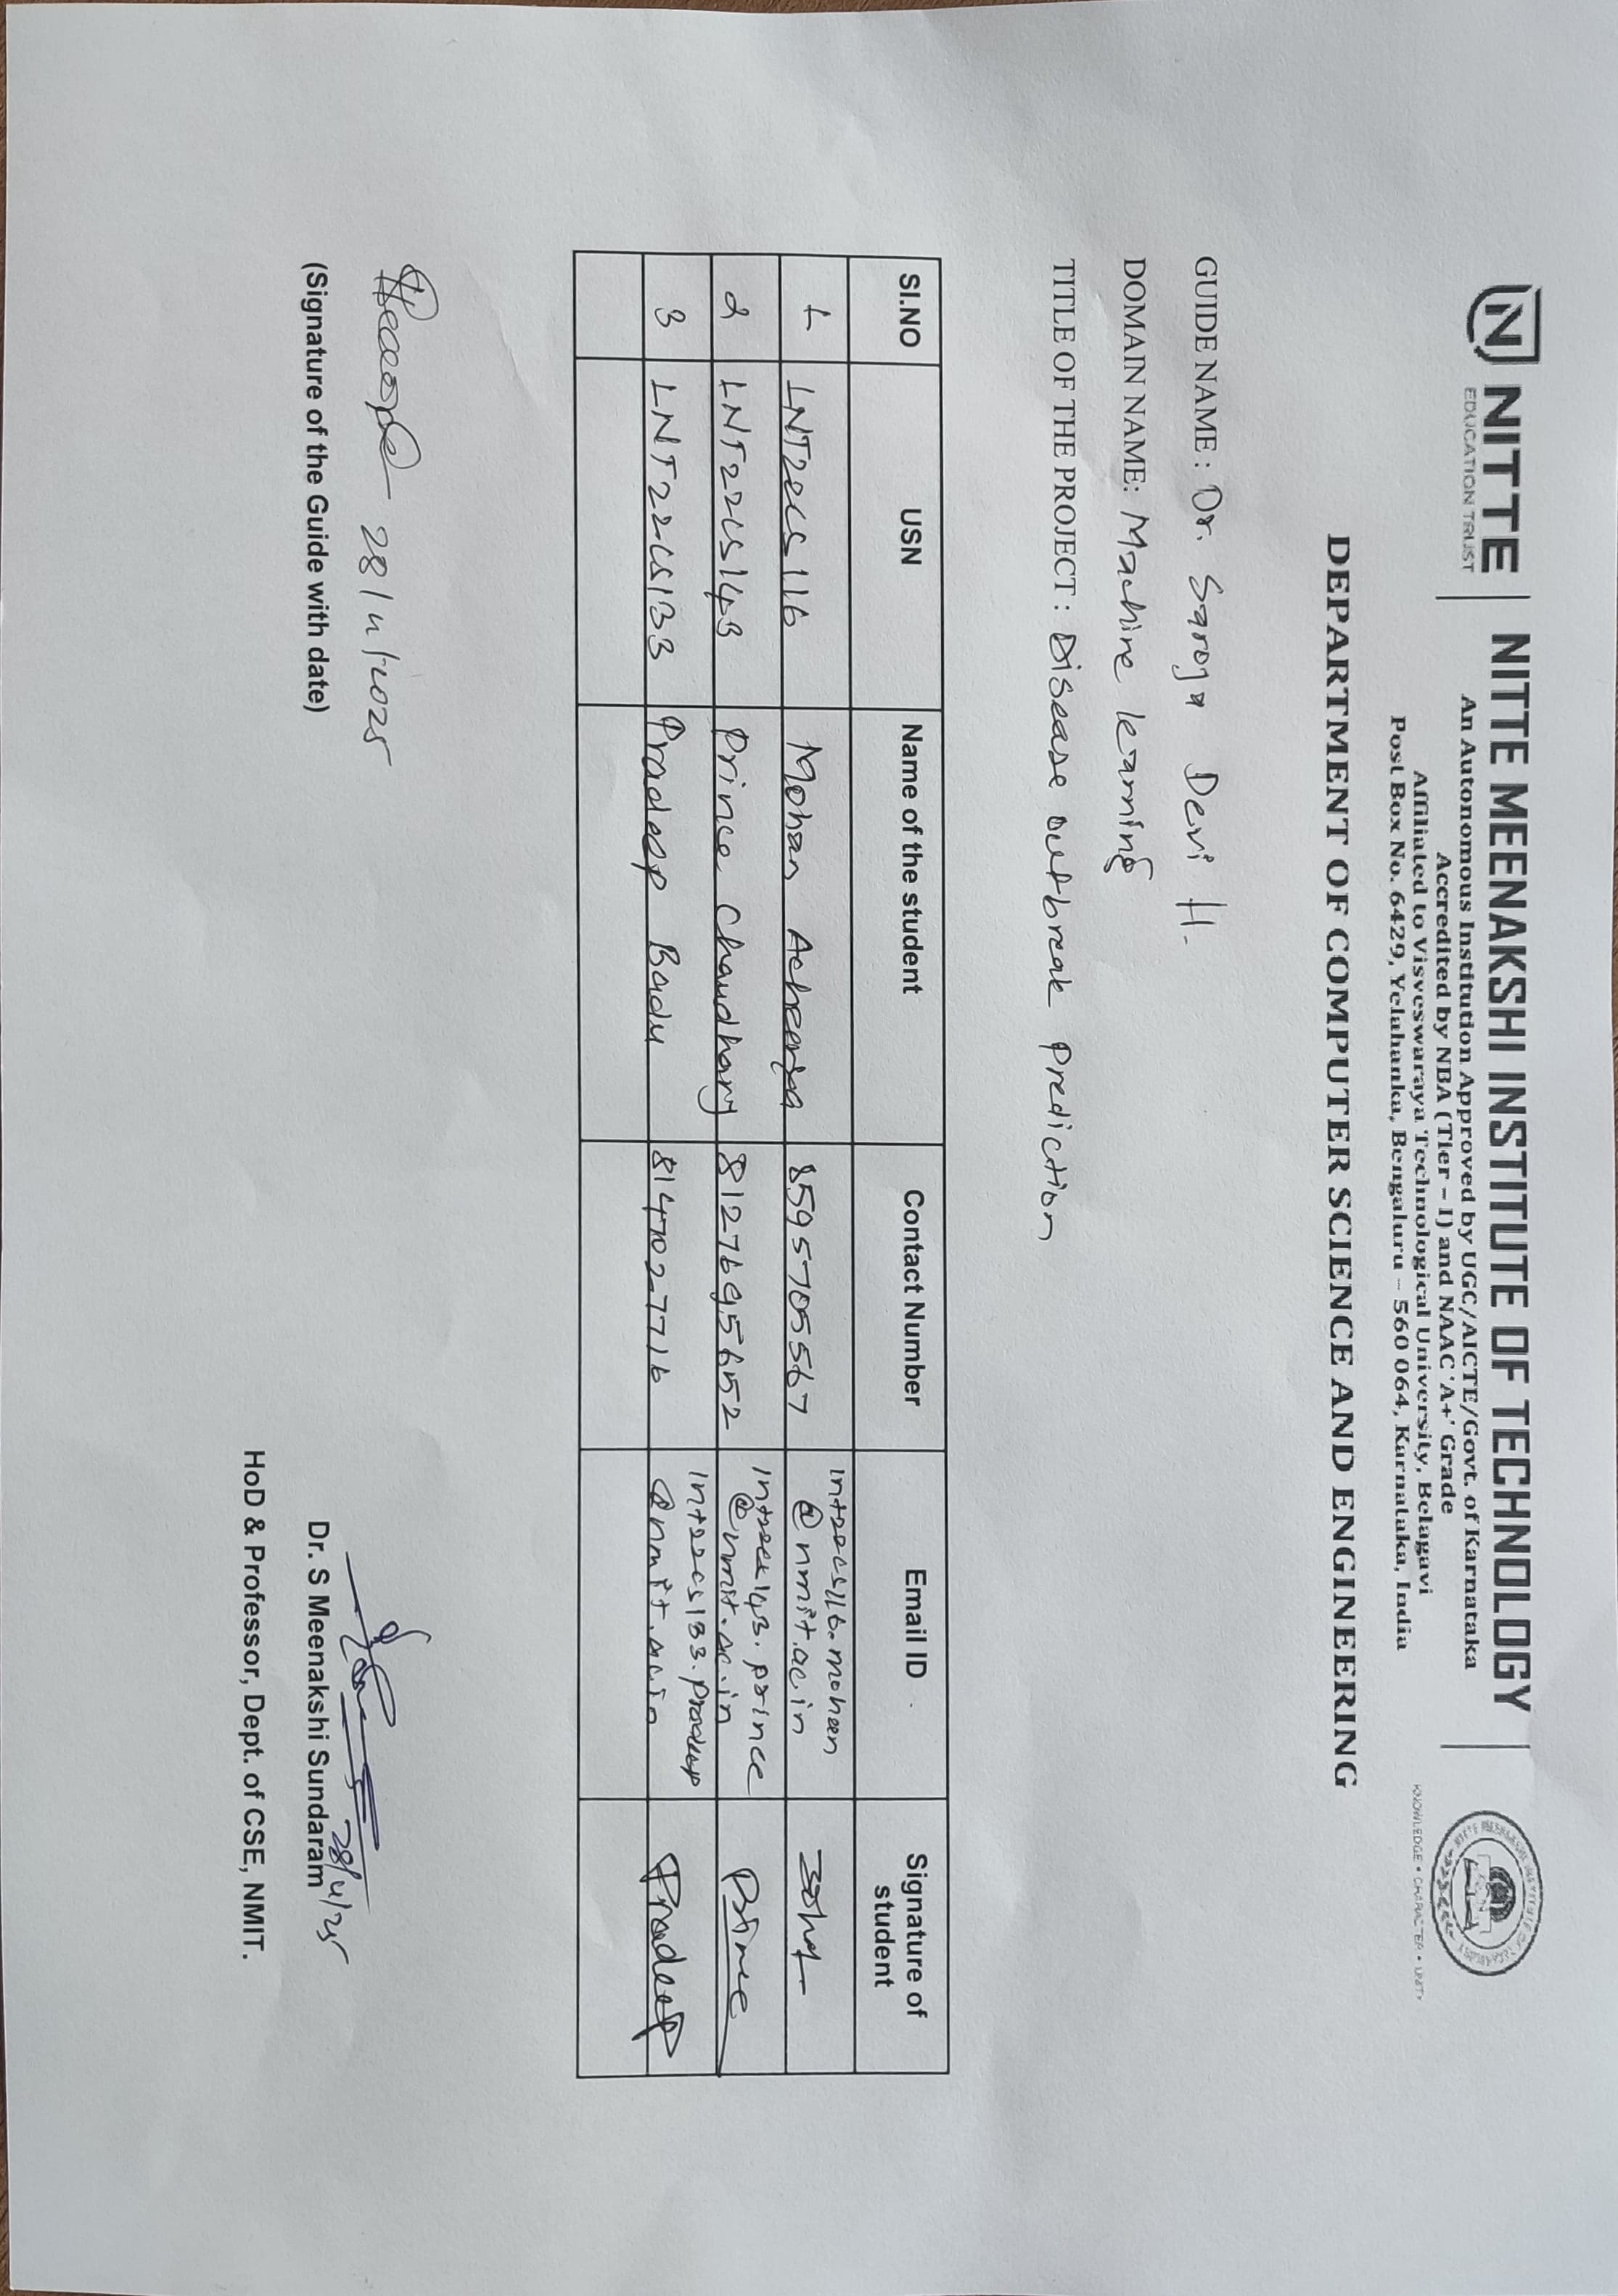 NITTE
EDUCATION TRUST
NITTE MEENAKSHI INSTITUTE OF TECHNOLOGY
An Autonomous Institution Approved by UGC/AICTE/Govt. of Karnataka
Accredited by NBA (Tier – I) and NAAC 'A+' Grade
Affiliated to Visveswaraya Technological University, Belagavi
Post Box No. 6429, Yelahanka, Bengaluru – 560 064, Karnataka, India
KNOWLEDGE • CHARACTER • UNITY
DEPARTMENT OF COMPUTER SCIENCE AND ENGINEERING
GUIDE NAME : Dr. Saroja Devi H.
DOMAIN NAME: Machine learning
TITLE OF THE PROJECT : Disease outbreak Prediction
SI.NO USN Name of the student Contact Number Email ID Signature of student
1 1NT22CS116 Mohan Acharya 8595705567 1nt22cs116.mohan@nmit.ac.in
2 1NT22CS143 Prince Chaudhary 8127695652 1nt22cs143.prince@nmit.ac.in Prince
3 1NT22CS133 Pradeep Badu 8147027716 1nt22cs133.pradeep@nmit.ac.in Pradeep
28/4/2025
(Signature of the Guide with date)
28/4/25
Dr. S Meenakshi Sundaram
HoD & Professor, Dept. of CSE, NMIT.